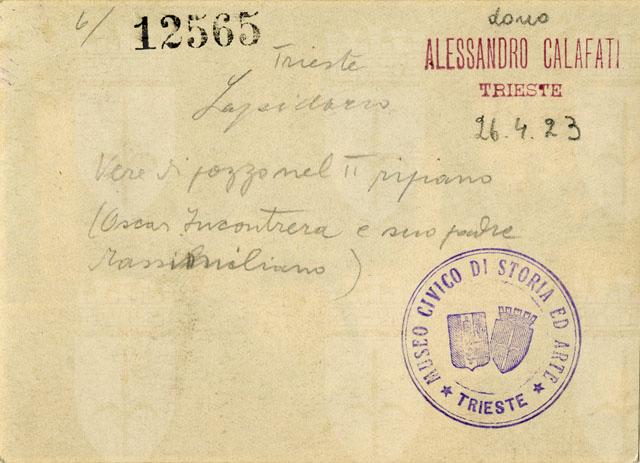 6/
12565
dono
ALESSANDRO CALAFATI
TRIESTE
26.4.23
Trieste
Lapidario
Vere di pozzo nel II ripiano
(Oscar Incontrera e suo padre
Massimiliano)
MUSEO CIVICO DI STORIA ED ARTE
★ TRIESTE ★